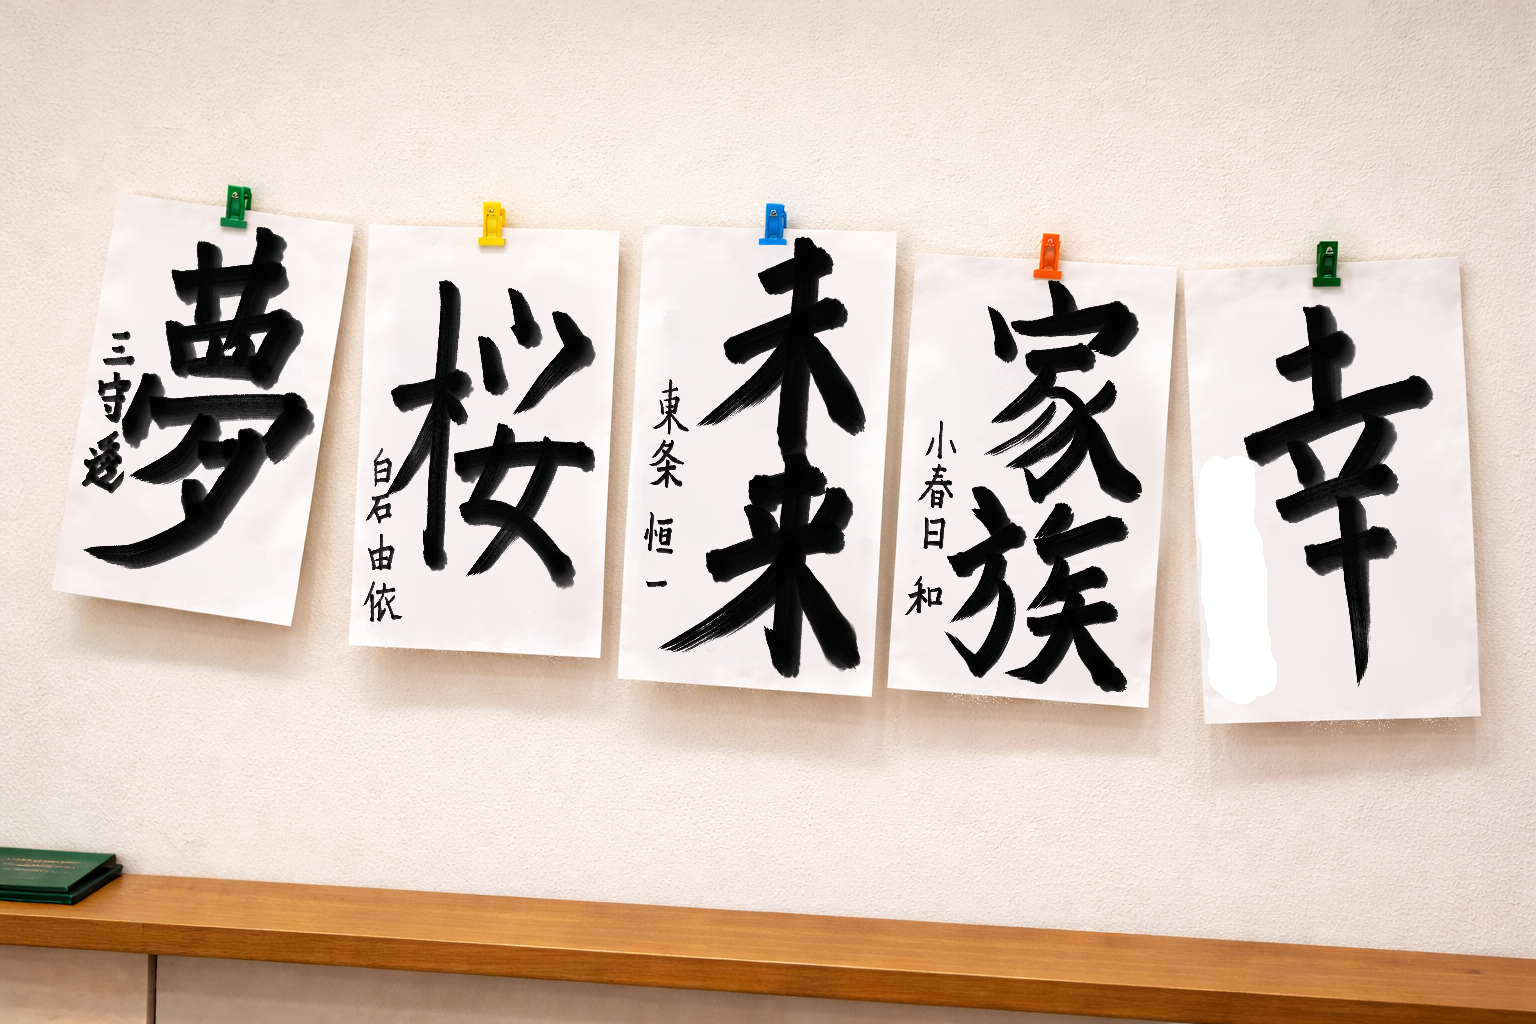 夢
三守遥
桜
白石由依
未来
東条 恒一
家族
小春日 和
幸